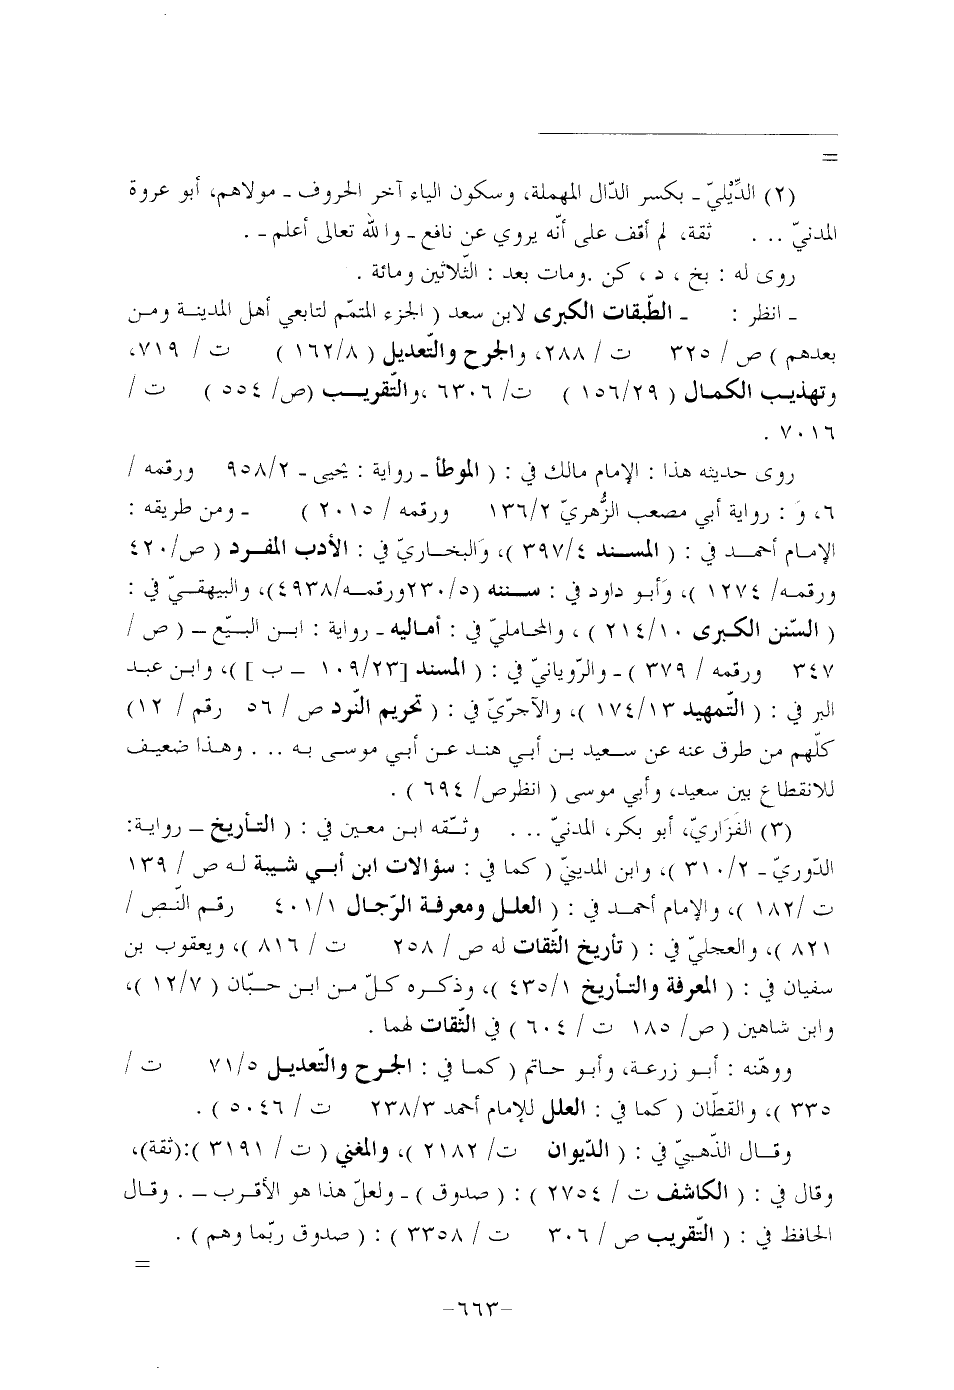 =
(٢) الدِّيْليّ ـ بكسر الدّال المهملة، وسكون الياء آخر الحروف ـ مولاهم، أبو عروة
المدنيّ ... ثقة، لم أقف على أنّه يروي عن نافع ـ والله تعالى أعلم ـ .
روى له : بخ ، د ، كن .ومات بعد : الثّلاثين ومائة .
ـ انظر : ـ الطّبقات الكبرى لابن سعد ( الجزء المتمّم لتابعي أهل المدينة ومن
بعدهم ) ص / ٣٢٥ ت / ٢٨٨، والجرح والتّعديل ( ١٦٢/٨ ) ت / ٧١٩،
وتهذيب الكمال ( ١٥٦/٢٩ ) ت/ ٦٣٠٦ ،والتّقريب (ص/ ٥٥٤ ) ت /
٧٠١٦ .
روى حديثه هذا : الإمام مالك في : ( الموطأ ـ رواية : يحيى ـ ٩٥٨/٢ ورقمه /
٦، وَ : رواية أبي مصعب الزُّهريّ ١٣٦/٢ ورقمه / ٢٠١٥ ) ـ ومن طريقه :
الإمام أحمد في : ( المسند ٣٩٧/٤ )، وَالبخاريّ في : الأدب المفرد ( ص/٤٢٠
ورقمه/ ١٢٧٤ )، وَأبو داود في : سننه (٢٣٠/٥ورقمه/٤٩٣٨)، والبيهقيّ في :
( السّنن الكبرى ٢١٤/١٠ ) ، والمحامليّ في : أماليه ـ رواية : ابن البيّع ـ ( ص /
٣٤٧ ورقمه / ٣٧٩ ) ـ والرّويانيّ في : ( المسند [١٠٩/٢٣ ـ ب ] )، وابن عبد
البر في : ( التّمهيد ١٧٤/١٣ )، والآجرّيّ في : ( تحريم النّرد ص / ٥٦ رقم / ١٢)
كلّهم من طرق عنه عن سعيد بن أبي هند عن أبي موسى به ... وهذا ضعيف
للانقطاع بين سعيد، وأبي موسى ( انظرص/ ٦٩٤ ) .
(٣) الفَزَاريّ، أبو بكر، المدنيّ ... وثّقه ابن معين في : ( التأريخ ـ رواية:
الدّوريّ ـ ٣١٠/٢ )، وابن المدينيّ ( كما في : سؤالات ابن أبي شيبة له ص / ١٣٩
ت /١٨٢ )، والإمام أحمد في : ( العلل ومعرفة الرّجال ٤٠١/١ رقم النّص /
٨٢١ )، والعجليّ في : ( تأريخ الثّقات له ص / ٢٥٨ ت / ٨١٦ )، ويعقوب بن
سفيان في : ( المعرفة والتأريخ ٤٣٥/١ )، وذكره كلّ من ابن حبّان ( ١٢/٧ )،
وابن شاهين ( ص/ ١٨٥ ت / ٦٠٤ ) في الثّقات لهما .
ووهّنه : أبو زرعة، وأبو حاتم ( كما في : الجرح والتّعديل ٧١/٥ ت /
٣٣٥ )، والقطّان ( كما في : العلل للإمام أحمد ٢٣٨/٣ ت / ٥٠٤٦ ) .
وقال الذّهبيّ في : ( الدّيوان ت/ ٢١٨٢ )، والمغني ( ت / ٣١٩١ ):(ثقة)،
وقال في : ( الكاشف ت / ٢٧٥٤ ) : ( صدوق ) ـ ولعلّ هذا هو الأقرب ـ . وقال
الحافظ في : ( التّقريب ص / ٣٠٦ ت / ٣٣٥٨ ) : ( صدوق ربّما وهم ) .
=
-٦٦٣-